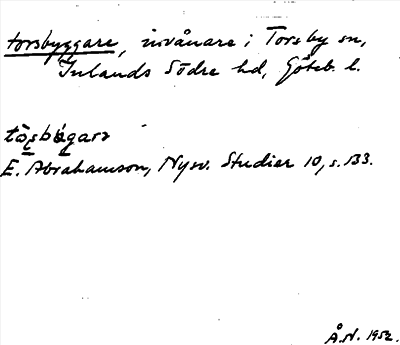 torsbyggare, invånare i Torsby sn,
Inlands Södre hd, Göteb. l.
E. Abrahamson, Nysv. Studier 10, s. 133.
Å.N. 1952.